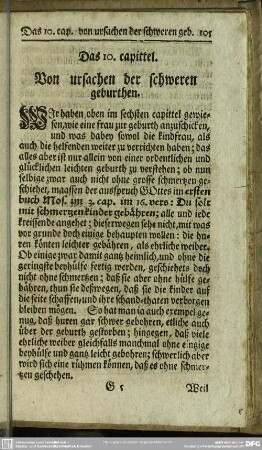 Das 10. cap. von ursachen der schweren geb. 105
Das 10. capittel.
Von ursachen der schweren
geburthen.
WIr haben oben im sechsten capittel gewie-
sen, wie eine frau zur geburth anzuschicken,
und was dabey sowol die kindfrau, als
auch die helfenden weiter zu verrichten haben; das
alles aber ist nur allein von einer ordentlichen und
glücklichen leichten geburth zu verstehen; ob nun
selbige zwar auch nicht ohne grosse schmertzen ge-
schiehet, maassen der ausspruch GOttes im ersten
buch Mos. im 3. cap. im 16. vers: Du solt
mit schmertzen kinder gebähren; alle und iede
kreissende angehet; dieserwegen sehe nicht, mit was
vor grunde doch einige behaupten wollen: die hu-
ren könten leichter gebähren, als ehrliche weiber.
Ob einige zwar damit gantz heimlich, und ohne die
geringste beyhülfe fertig werden, geschiehets doch
nicht ohne schmertzen; daß sie aber ohne hülfe ge-
bähren, thun sie deßwegen, daß sie die kinder auf
die seite schaffen, und ihre schand-thaten verborgen
bleiben mögen. So hat man ja auch exempel ge-
nug, daß huren gar schwer gebohren, etliche auch
über der geburth gestorben; hingegen, daß viele
ehrliche weiber gleichfalls manchmal ohne einzige
beyhülfe und gantz leicht gebohren; schwerlich aber
wird sich eine rühmen können, daß es ohne schmer-
tzen geschehen.
G 5 Weil